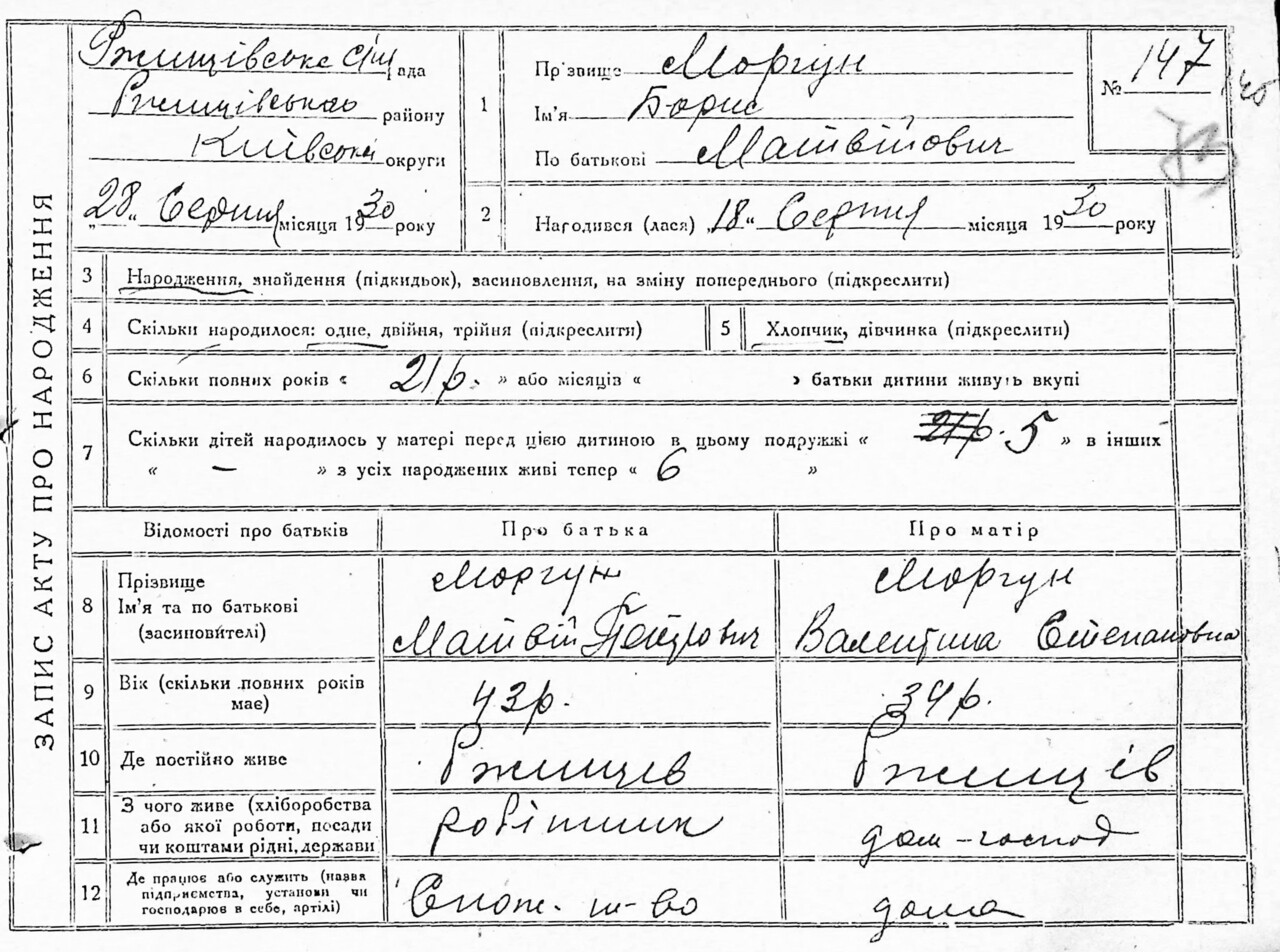 ЗАПИС АКТУ ПРО НАРОДЖЕННЯ
Ржищівське с/щ рада
Ржищівського району
Київської округи
„28„ Серпня місяця 1930 року
1
Пр'звище Моргун
Ім'я Борис
По батькові Матвійович
№ 147
2
Народився (лася) „18„ Серпня місяця 1930 року
3 Народження, знайдення (підкидьок), засиновлення, на зміну попереднього (підкреслити)
4 Скільки народилося: одне, двійня, трійня (підкреслити)
5 Хлопчик, дівчинка (підкреслити)
6 Скільки повних років « 21 р. » або місяців « » батьки дитини живуть вкупі
7 Скільки дітей народилось у матері перед цією дитиною в цьому подружжі « 21р. 5 » в інших
« – » з усіх народжених живі тепер « 6 »
Відомості про батьків Про батька Про матір
8 Прізвище Моргун Моргун
Ім'я та по батькові
(засиновителі) Матвій Петрович Валентина Степановна
9 Вік (скільки повних років
має) 43р. 34р.
10 Де постійно живе Ржищев Ржищів
11 З чого живе (хліборобства
або якої роботи, посади
чи коштами рідні, держави робітник дом-господ
12 Де працює або служить (назва
підприємства, установи чи
господарює в себе, артілі) Спож. т-во дома